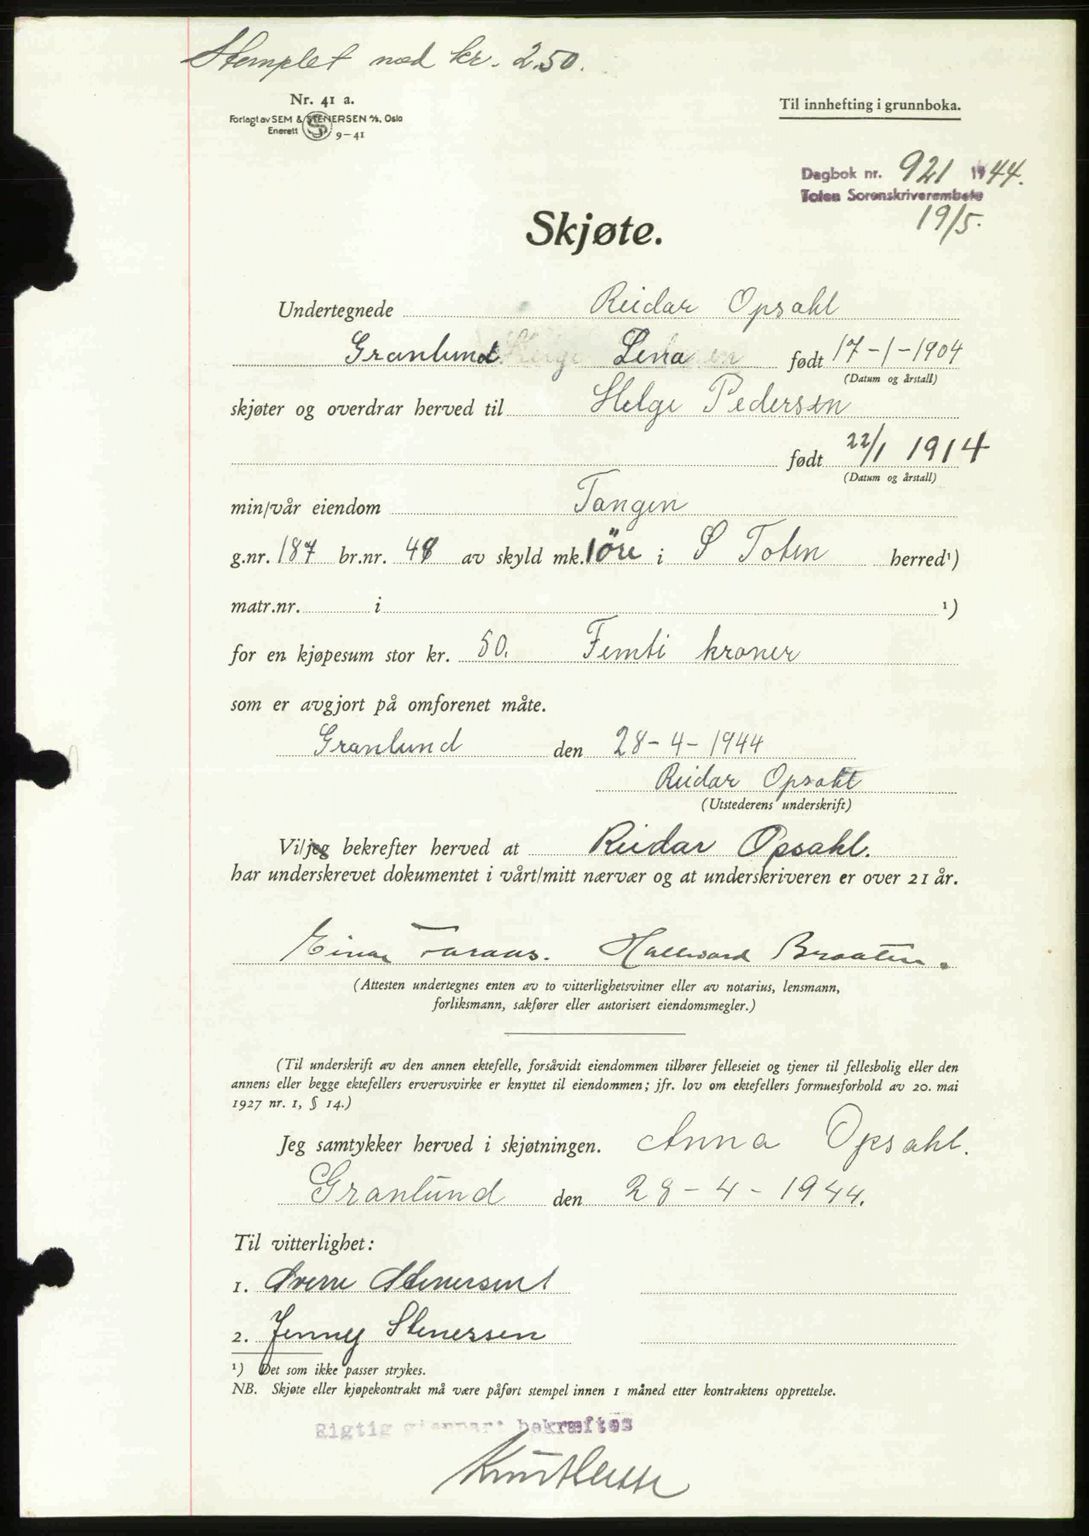 Stemplet med kr. 2.50.
Nr. 41 a.
Forlagt av SEM & STENERSEN A/S, Oslo
Enerett 9-41
Til innhefting i grunnboka.
Dagbok nr. 921 1944.
Toten Sorenskriverembete
19/5.
Skjøte.
Undertegnede Reidar Opsahl
Granlund Lena født 17-1-1904
(Datum og årstall)
skjøter og overdrar herved til Helge Pedersen
født 22/1 1914
(Datum og årstall)
min/vår eiendom Tangen
g.nr. 187 br.nr. 48 av skyld mk. 1 öre i S Toten herred¹)
matr.nr. i ¹)
for en kjøpesum stor kr. 50. Femti kroner
som er avgjort på omforenet måte.
Granlund den 28-4-1944
Reidar Opsahl
(Utstederens underskrift)
Vi/jeg bekrefter herved at Reidar Opsahl.
har underskrevet dokumentet i vårt/mitt nærvær og at underskriveren er over 21 år.
Einar Hallvard Braaten.
(Attesten undertegnes enten av to vitterlighetsvitner eller av notarius, lensmann,
forliksmann, sakfører eller autorisert eiendomsmegler.)
(Til underskrift av den annen ektefelle, forsåvidt eiendommen tilhører felleseiet og tjener til fellesbolig eller den
annens eller begge ektefellers ervervsvirke er knyttet til eiendommen; jfr. lov om ektefellers formuesforhold av 20. mai
1927 nr. 1, § 14.)
Jeg samtykker herved i skjøtningen. Anna Opsahl.
Granlund den 28-4-1944.
Til vitterlighet:
1. Sverre Stenersen
2. Jenny Stenersen
¹) Det som ikke passer strykes.
NB. Skjøte eller kjøpekontrakt må være påført stempel innen 1 måned etter kontraktens opprettelse.
Rigtig gjenpart bekræftes